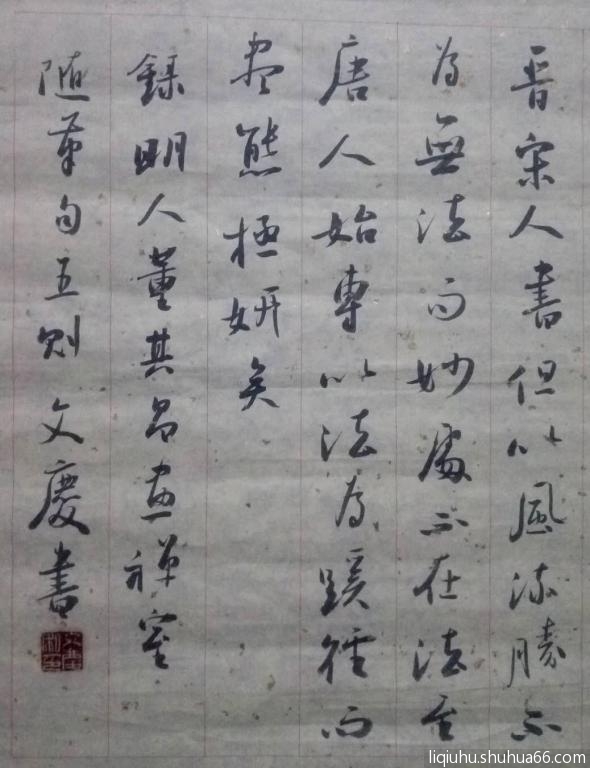 晋宋人書但以風流勝不
為無法而妙處不在法至
唐人始專以法為蹊徑而
盡態極妍矣
錄明人董其昌畫禅室
随筆句五則 文慶書
liqiuhu.shuhua66.com